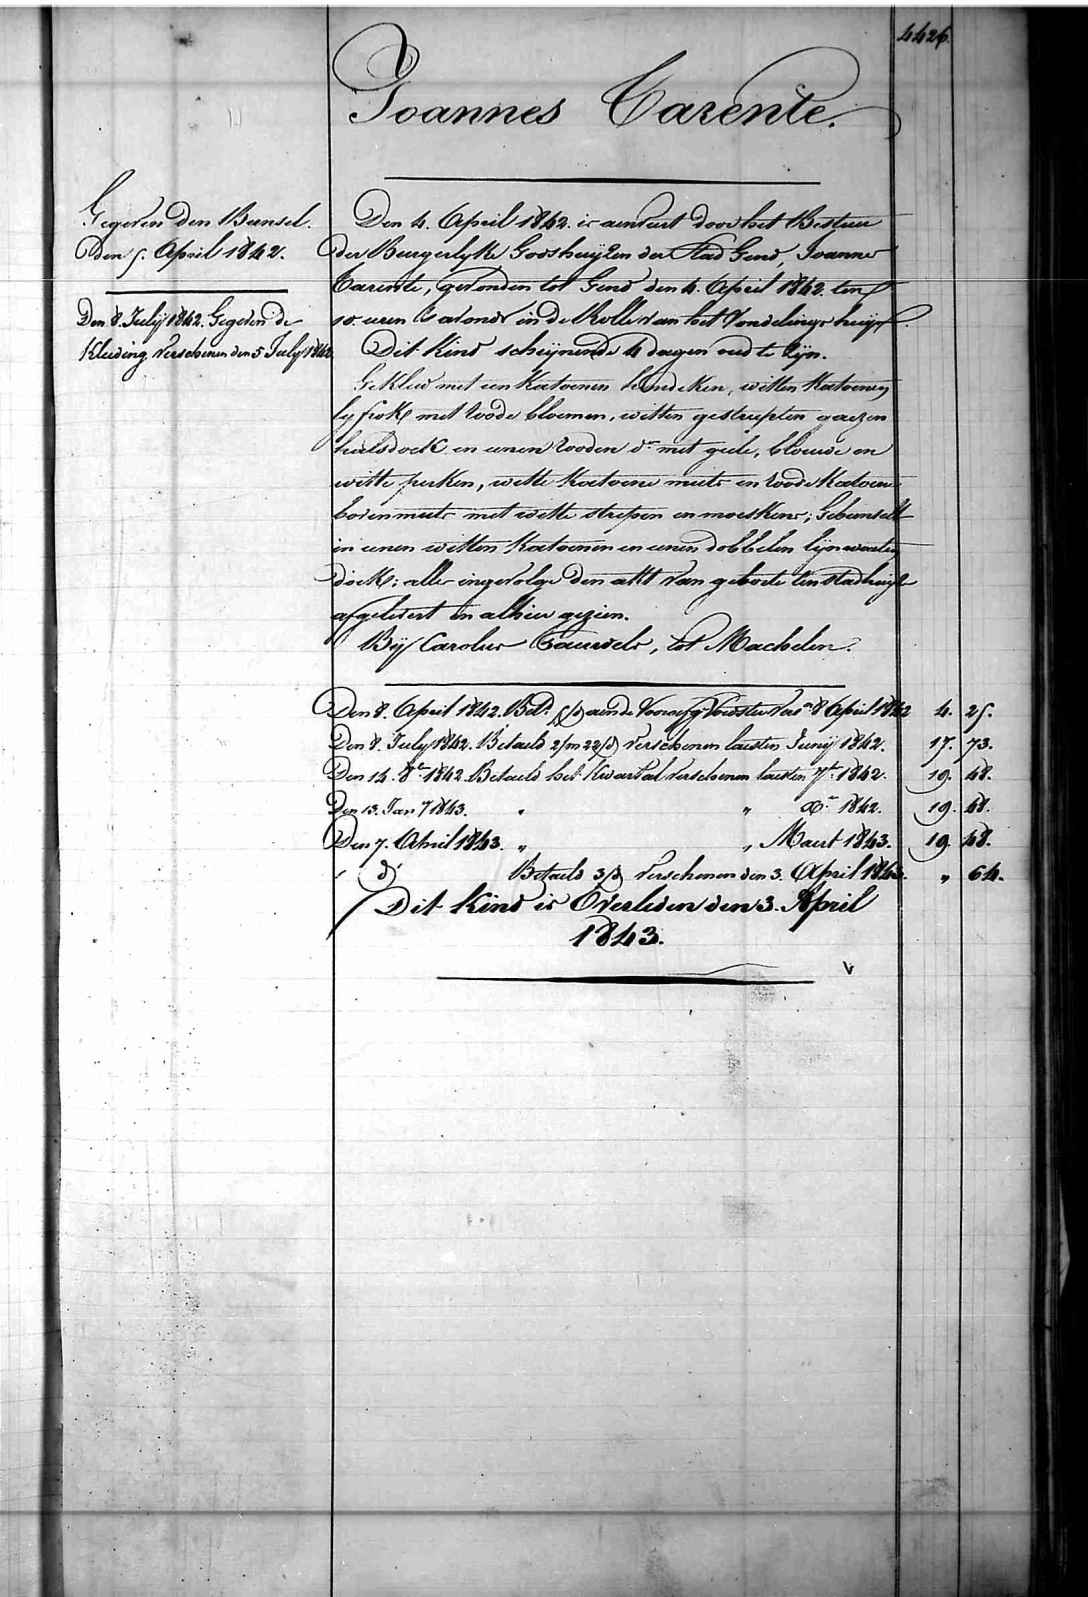 4426.
Joannes Tarente.
Gegeven den Bunsel.
Den 5. April 1842.
Den 8. July 1842. Gegeven de
Kleeding verschenen den 5 July 1842
Den 4. April 1842. is aenveirt door het Bestuer
der Burgerlyke Godshuijzen der stad Gend, Joannes
Tarente, gevonden tot Gend den 4. April 1842. ten
10. uren s'avonds in de Rolle van het Vondelings huijs.
Dit kind scheijnende 4 dagen oud te zyn.
Gekleed met een Katoenen hemdeken, witten Katoenen
lyfrok met roode bloemen, witten gestreepten gaezen
halsdoek en eenen rooden do met gele, blauwe en
witte perken, witte Katoene muts en roode Katoene
bovenmuts met witte strepen en moeskens; Gebunselt
in eenen witten Katoenen en eenen dobbelen lynwaeten
doek: alles ingevolge den akt van geboorte ten stadhuijse
afgelevert en alhier gezien.
By Carolus Cauwels, tot Machelen.
Den 8. April 1842. Bet. aen de Voorzorg Vrouw 8 April 1842 4. 25.
Den 8. July 1842. Betaeld 2/m 22/d verschenen laesten Junij 1842. 17. 73.
Den 14. 8er 1842. Betaeld het Kwartael verschenen laesten 7r 1842. 19. 48.
Den 13. Jan 7 1843. " " Xr 1842. 19. 48.
Den 7. April 1843. " " Maert 1843. 19. 48.
" do Betaeld 3/d verschenen den 3. April 1843. " 64.
Dit kind is Overleden den 3. April
1843.